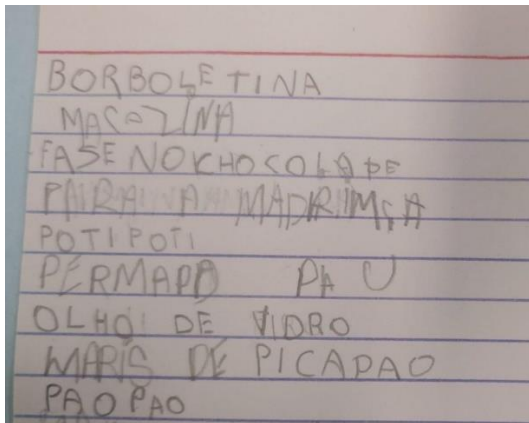 BORBOLETINA
MACOZINA
FASENOKHOCOLADE
PAIRA NA MADRIMSA
POTIPOTI
PERMADD PAU
OLHOI DE VIDRO
MARIS DE PICAPAO
PAOPAO